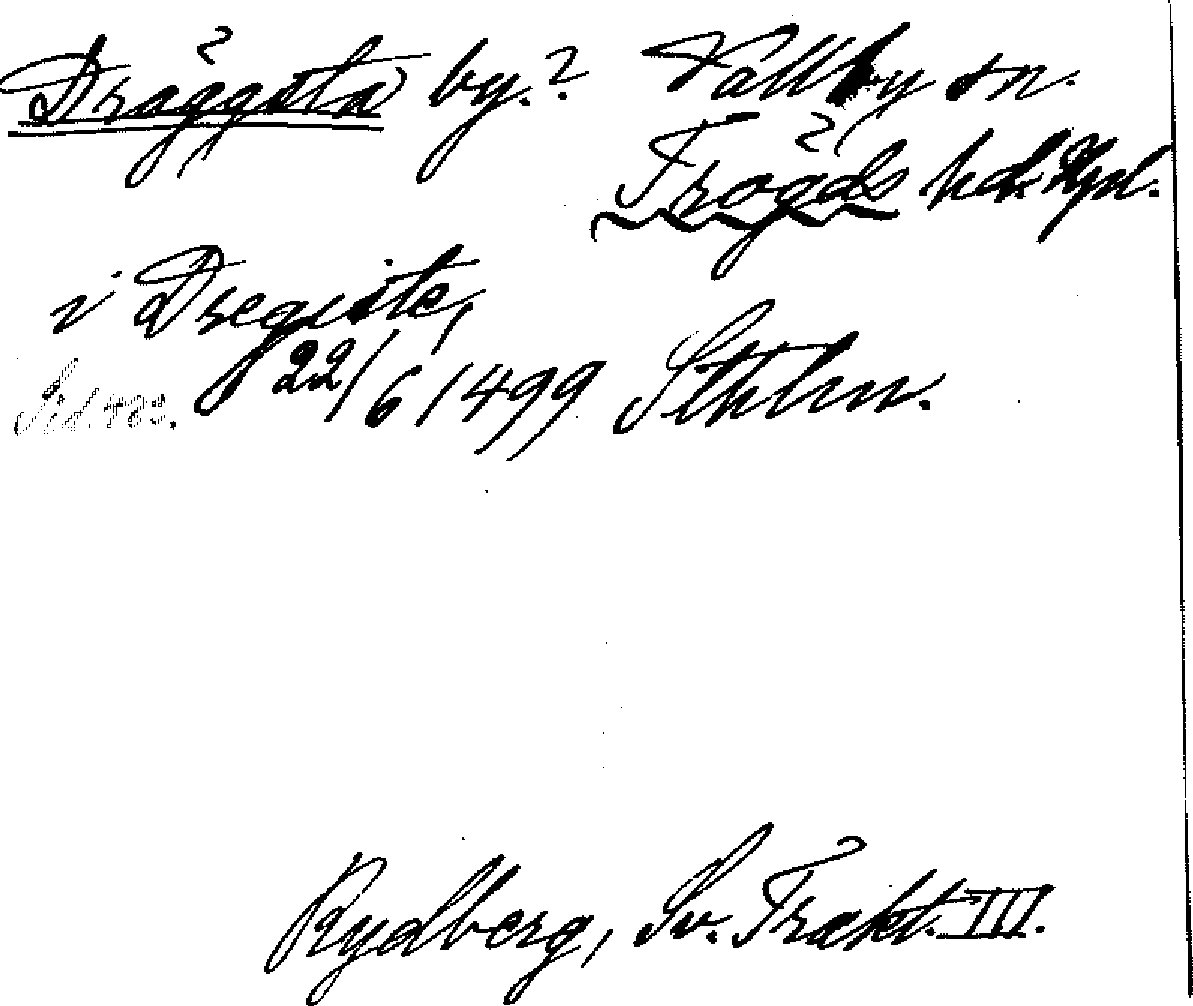 Dräggsta by.? Vallby sn.
Trögds hd. Upl.
i Dregxste,
22/6 1499 Sthlm.
Rydberg, Sv. Trakt. III.